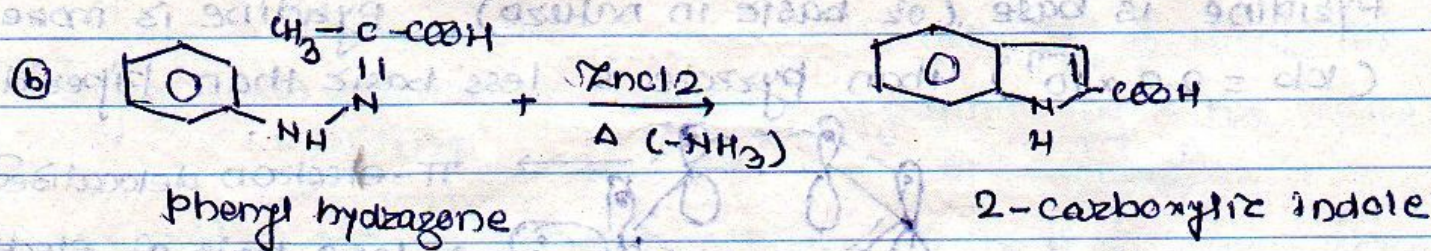 CH3 – C – COOH
ⓑ
N
NH
+
ZnCl2
Δ (-NH3)
COOH
N
H
phenyl hydrazone
2-carboxylic indole